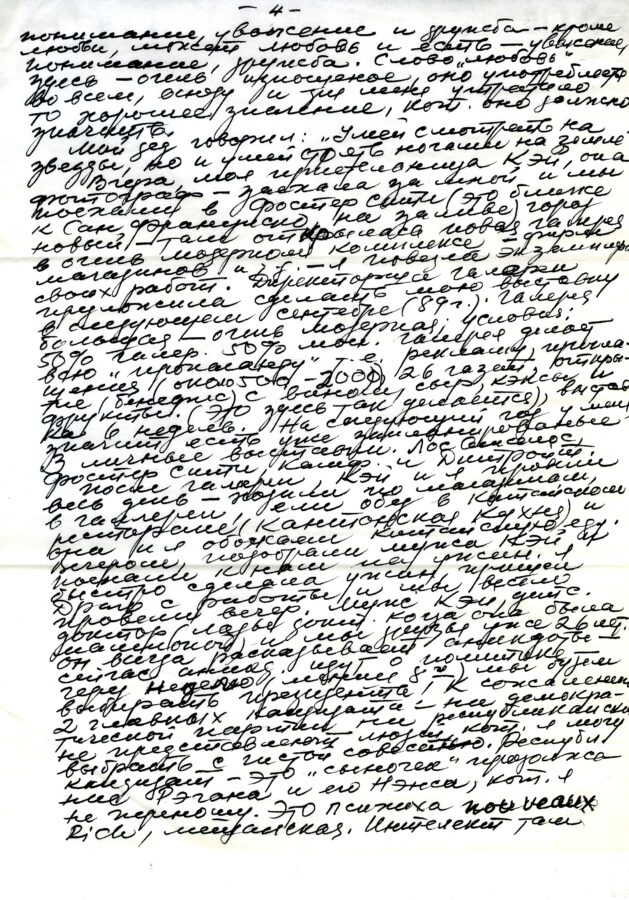 — 4 —
понимание, уважение и дружба — кроме
любви, может любовь и есть — уважение,
понимание, дружба. Слово „любовь“
здесь — очень изношеное, оно употребляется
во всем, всюду и для меня утратило
то хорошее значение, кот. оно должно
значить.
Мой дед говорил: „Умей смотреть на
звезды, но и умей стоять ногами на земле
Вчера, моя приятельница Кэй, она
фотограф — заехала за мной и мы
поехали в Фостер сити (это ближе
к Сан Франциско, на заливе) город
новый — там открылась новая галерея
в очень модерном комплексе —
магазинов и т.д. — я повезла экземпляры
своих работ. Директорша галереи
предложила сделать мою выставку
в следующем сентябре (89 г.). Галерея
большая — очень модерная, условия:
50% галер. 50% мои. Галерея делает
всю „пропаганду“ т.е. рекламу, пригла-
щения (около 500 – 2000), 26 газет, откры-
тие (бенефис) с вином, сыр, кэксы и
фрукты. (Это здесь так делается), выстав
ка 8 недель. На следующий год у меня
значит есть уже запланированые
3 личные выставки. Лос Анжелос,
Фостер сити Калиф. и Дитройт.
После галереи Кэй и я провели
весь день — ходили по магазинам,
в галереи, ели обед в Китайском
ресторане (Кантонская кухня) и
она и я обожаем Китайскую еду.
Вечером, подобрали мужа Кэй и
поехали к нам на ужин. Я
быстро сделала ужин, пришел
Драго с работы и мы весело
провели вечер. Муж Кэй детс.
доктор (Лады докт. когда она была
маленькой) и мы друзья уже 26 лет.
он всегда рассказывает анекдоты —
сейчас анекд. идут о политике
через неделю, мы будем
выбирать президента! К сожалению
2 главных кандидата — ни демокра-
тической партии ни республиканской
не представляют людей кот. я могу
выбрать с чистой совестью. Республ.
кандидат — это „сыночек“
Рэгана и его Нэнси, кот. я
не переношу. Это психика nouveaux
Rich, мещанская. Интелект там